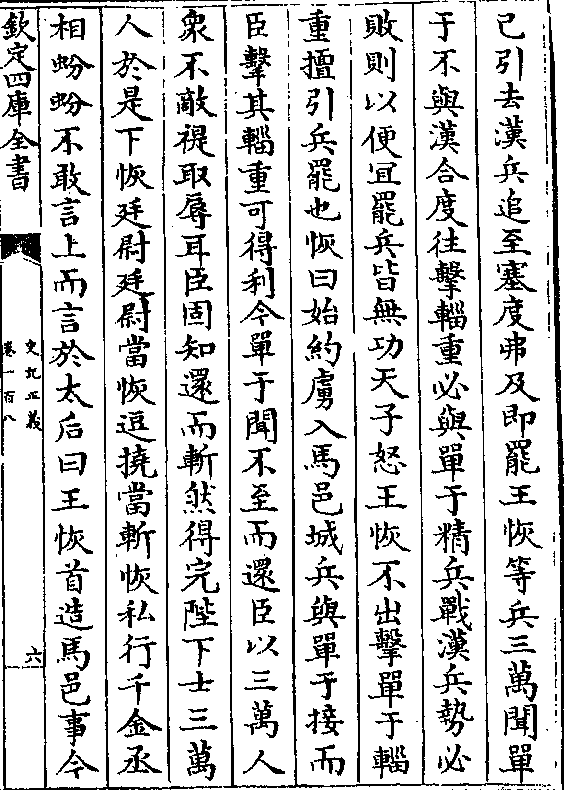 已引去漢兵追至塞度弗及即罷王恢等兵三萬聞單
于不與漢合度往擊輜重必與單于精兵戰漢兵勢必
敗則以便宜罷兵皆無功天子怒王恢不出擊單于輜
重擅引兵罷也恢曰始約虜入馬邑城兵與單于接而
臣擊其輜重可得利今單于聞不至而還臣以三萬人
衆不敵禔取辱耳臣固知還而斬然得完陛下士三萬
人於是下恢廷尉廷尉當恢逗撓當斬恢私行千金丞
相蚡蚡不敢言上而言於太后曰王恢首造馬邑事今
欽定四庫全書
史記正義
卷一百八
六